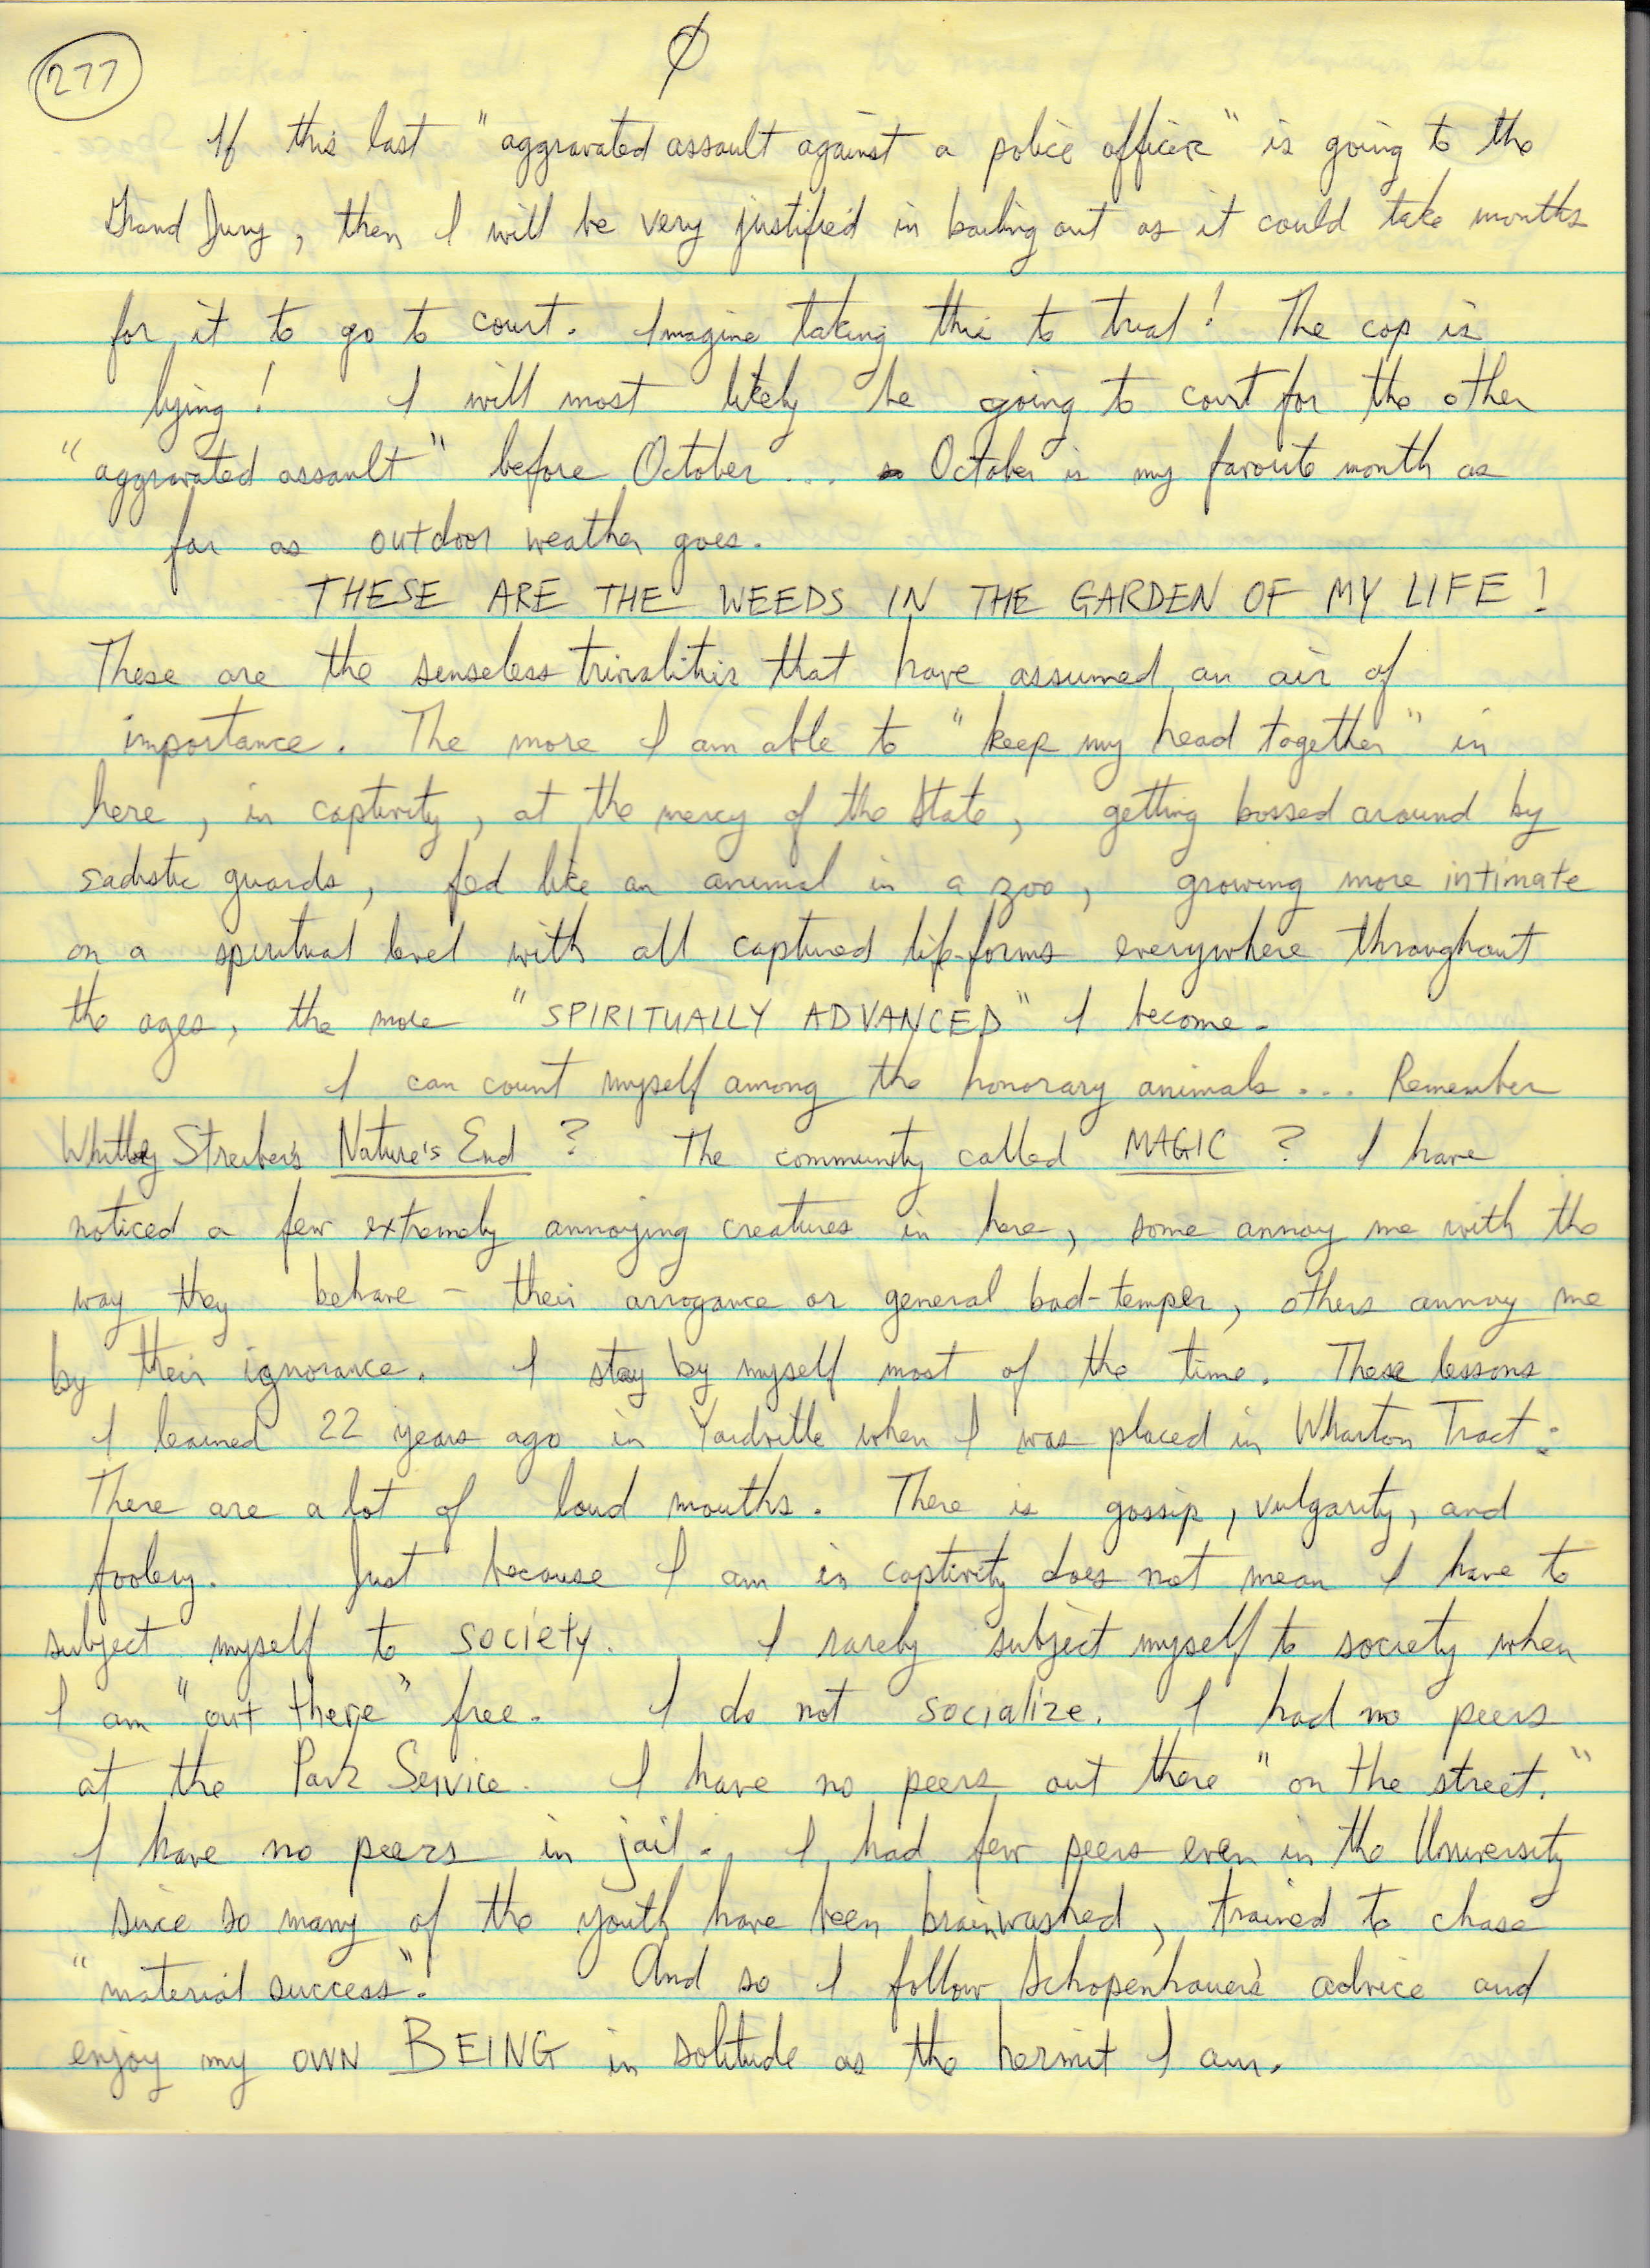 277
Ø
If this last "aggravated assault against a police officer" is going to the
Grand Jury, then I will be very justified in bailing out as it could take months
for it to go to court. Imagine taking this to trial! The cop is
lying! I will most likely be going to court for the other
"aggravated assault" before October... October is my favorite month as
far as outdoor weather goes.
THESE ARE THE WEEDS IN THE GARDEN OF MY LIFE!
These are the senseless trivialities that have assumed an air of
importance. The more I am able to "keep my head together" in
here, in captivity, at the mercy of the State, getting bossed around by
sadistic guards, fed like an animal in a zoo, growing more intimate
on a spiritual level with all captured life-forms everywhere throughout
the ages, the more "SPIRITUALLY ADVANCED" I become.
I can count myself among the honorary animals... Remember
Whitley Streiber's Nature's End? The community called MAGIC? I have
noticed a few extremely annoying creatures in here, some annoy me with the
way they behave - their arrogance or general bad-temper, others annoy me
by their ignorance. I stay by myself most of the time. These lessons
I learned 22 years ago in Yardville when I was placed in Wharton Tract:
There are a lot of loud mouths. There is gossip, vulgarity, and
foolery. Just because I am in captivity does not mean I have to
subject myself to society. I rarely subject myself to society when
I am "out there" free. I do not socialize. I had no peers
at the Park Service. I have no peers out there "on the street."
I have no peers in jail. I had few peers even in the University
since so many of the youth have been brainwashed, trained to chase
"material success". And so I follow Schopenhauer's advice and
enjoy my OWN BEING in solitude as the hermit I am.